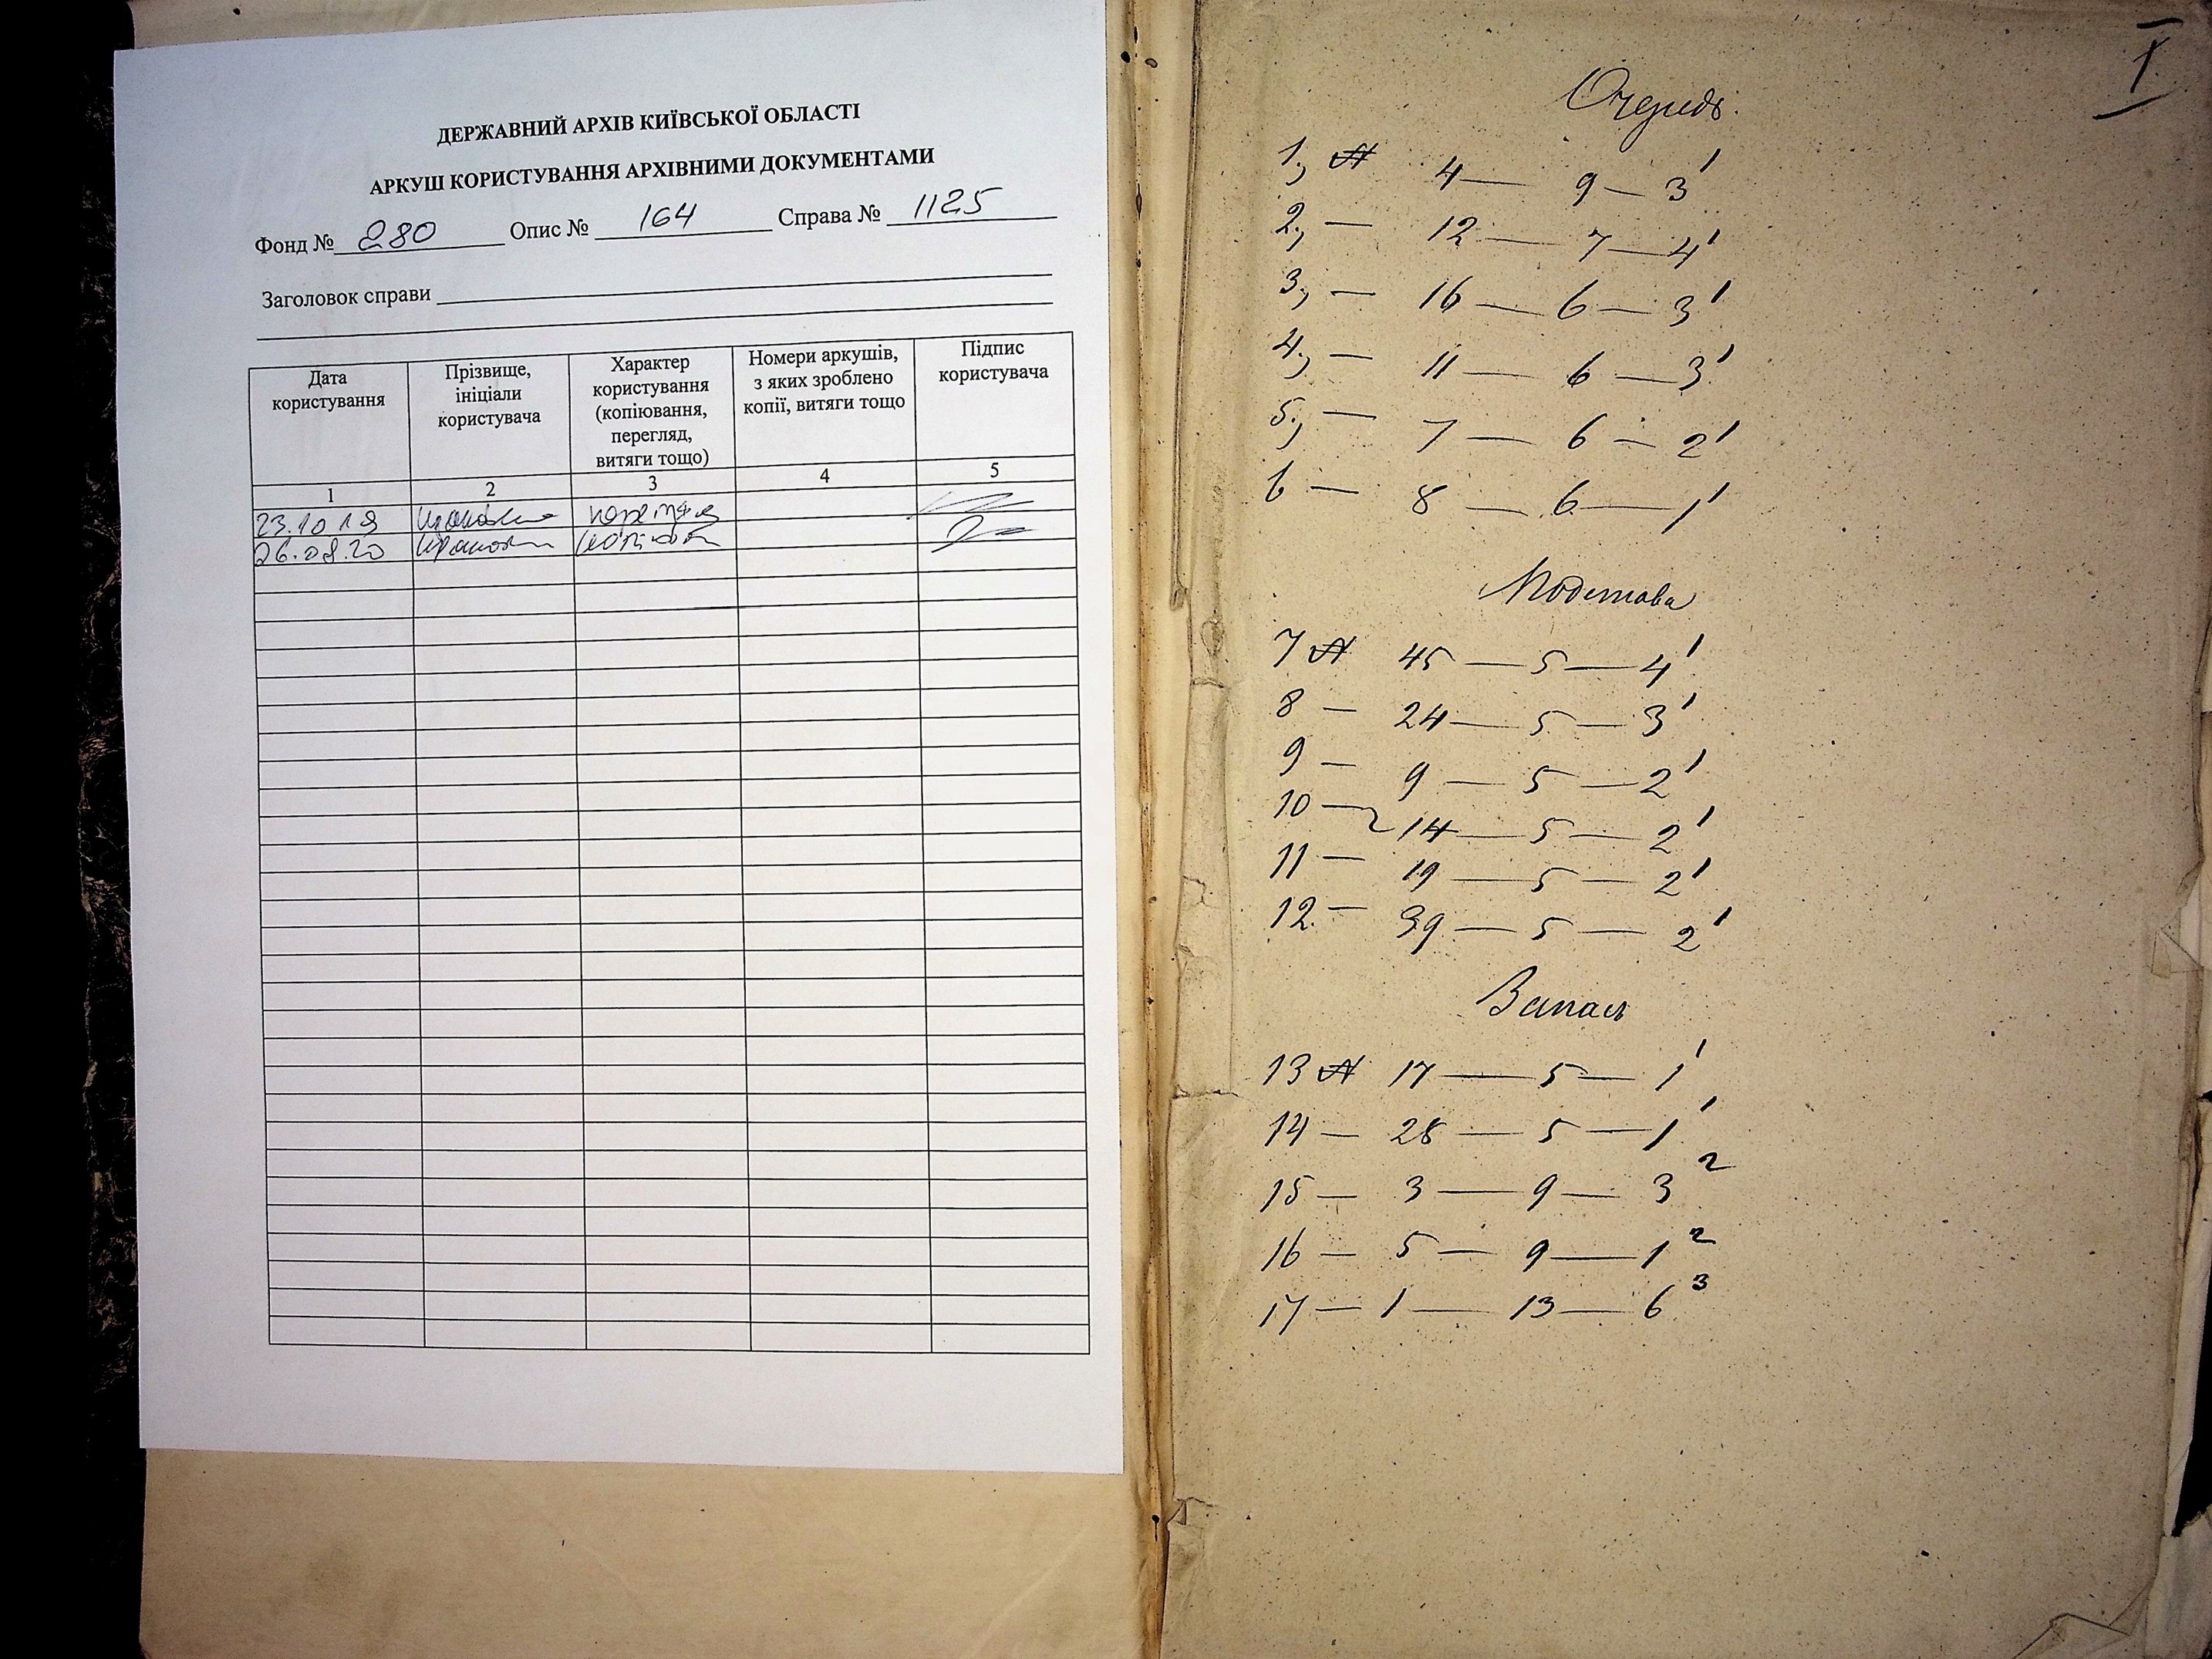 ДЕРЖАВНИЙ АРХІВ КИЇВСЬКОЇ ОБЛАСТІ
АРКУШ КОРИСТУВАННЯ АРХІВНИМИ ДОКУМЕНТАМИ
Фонд № 280 Опис № 164 Справа № 1125
Заголовок справи
Дата користування
Прізвище, ініціали користувача
Характер користування (копіювання, перегляд, витяги тощо)
Номери аркушів, з яких зроблено копії, витяги тощо
Підпис користувача
1 2 3 4 5
23.10.19
26.08.20
I
Очередь.
1, № 4 — 9 — 3¹
2, — 12 — 7 — 4¹
3, — 16 — 6 — 3¹
4, — 11 — 6 — 3¹
5, — 7 — 6 — 2¹
6 — 8 — 6 — 1¹
Подстава
7 № 45 — 5 — 4¹
8 — 24 — 5 — 3¹
9 — 9 — 5 — 2¹
10 — 14 — 5 — 2¹
11 — 19 — 5 — 2¹
12 — 39 — 5 — 2¹
Запасъ
13 № 17 — 5 — 1¹
14 — 28 — 5 — 1¹
15 — 3 — 9 — 3²
16 — 5 — 9 — 1²
17 — 1 — 13 — 6³